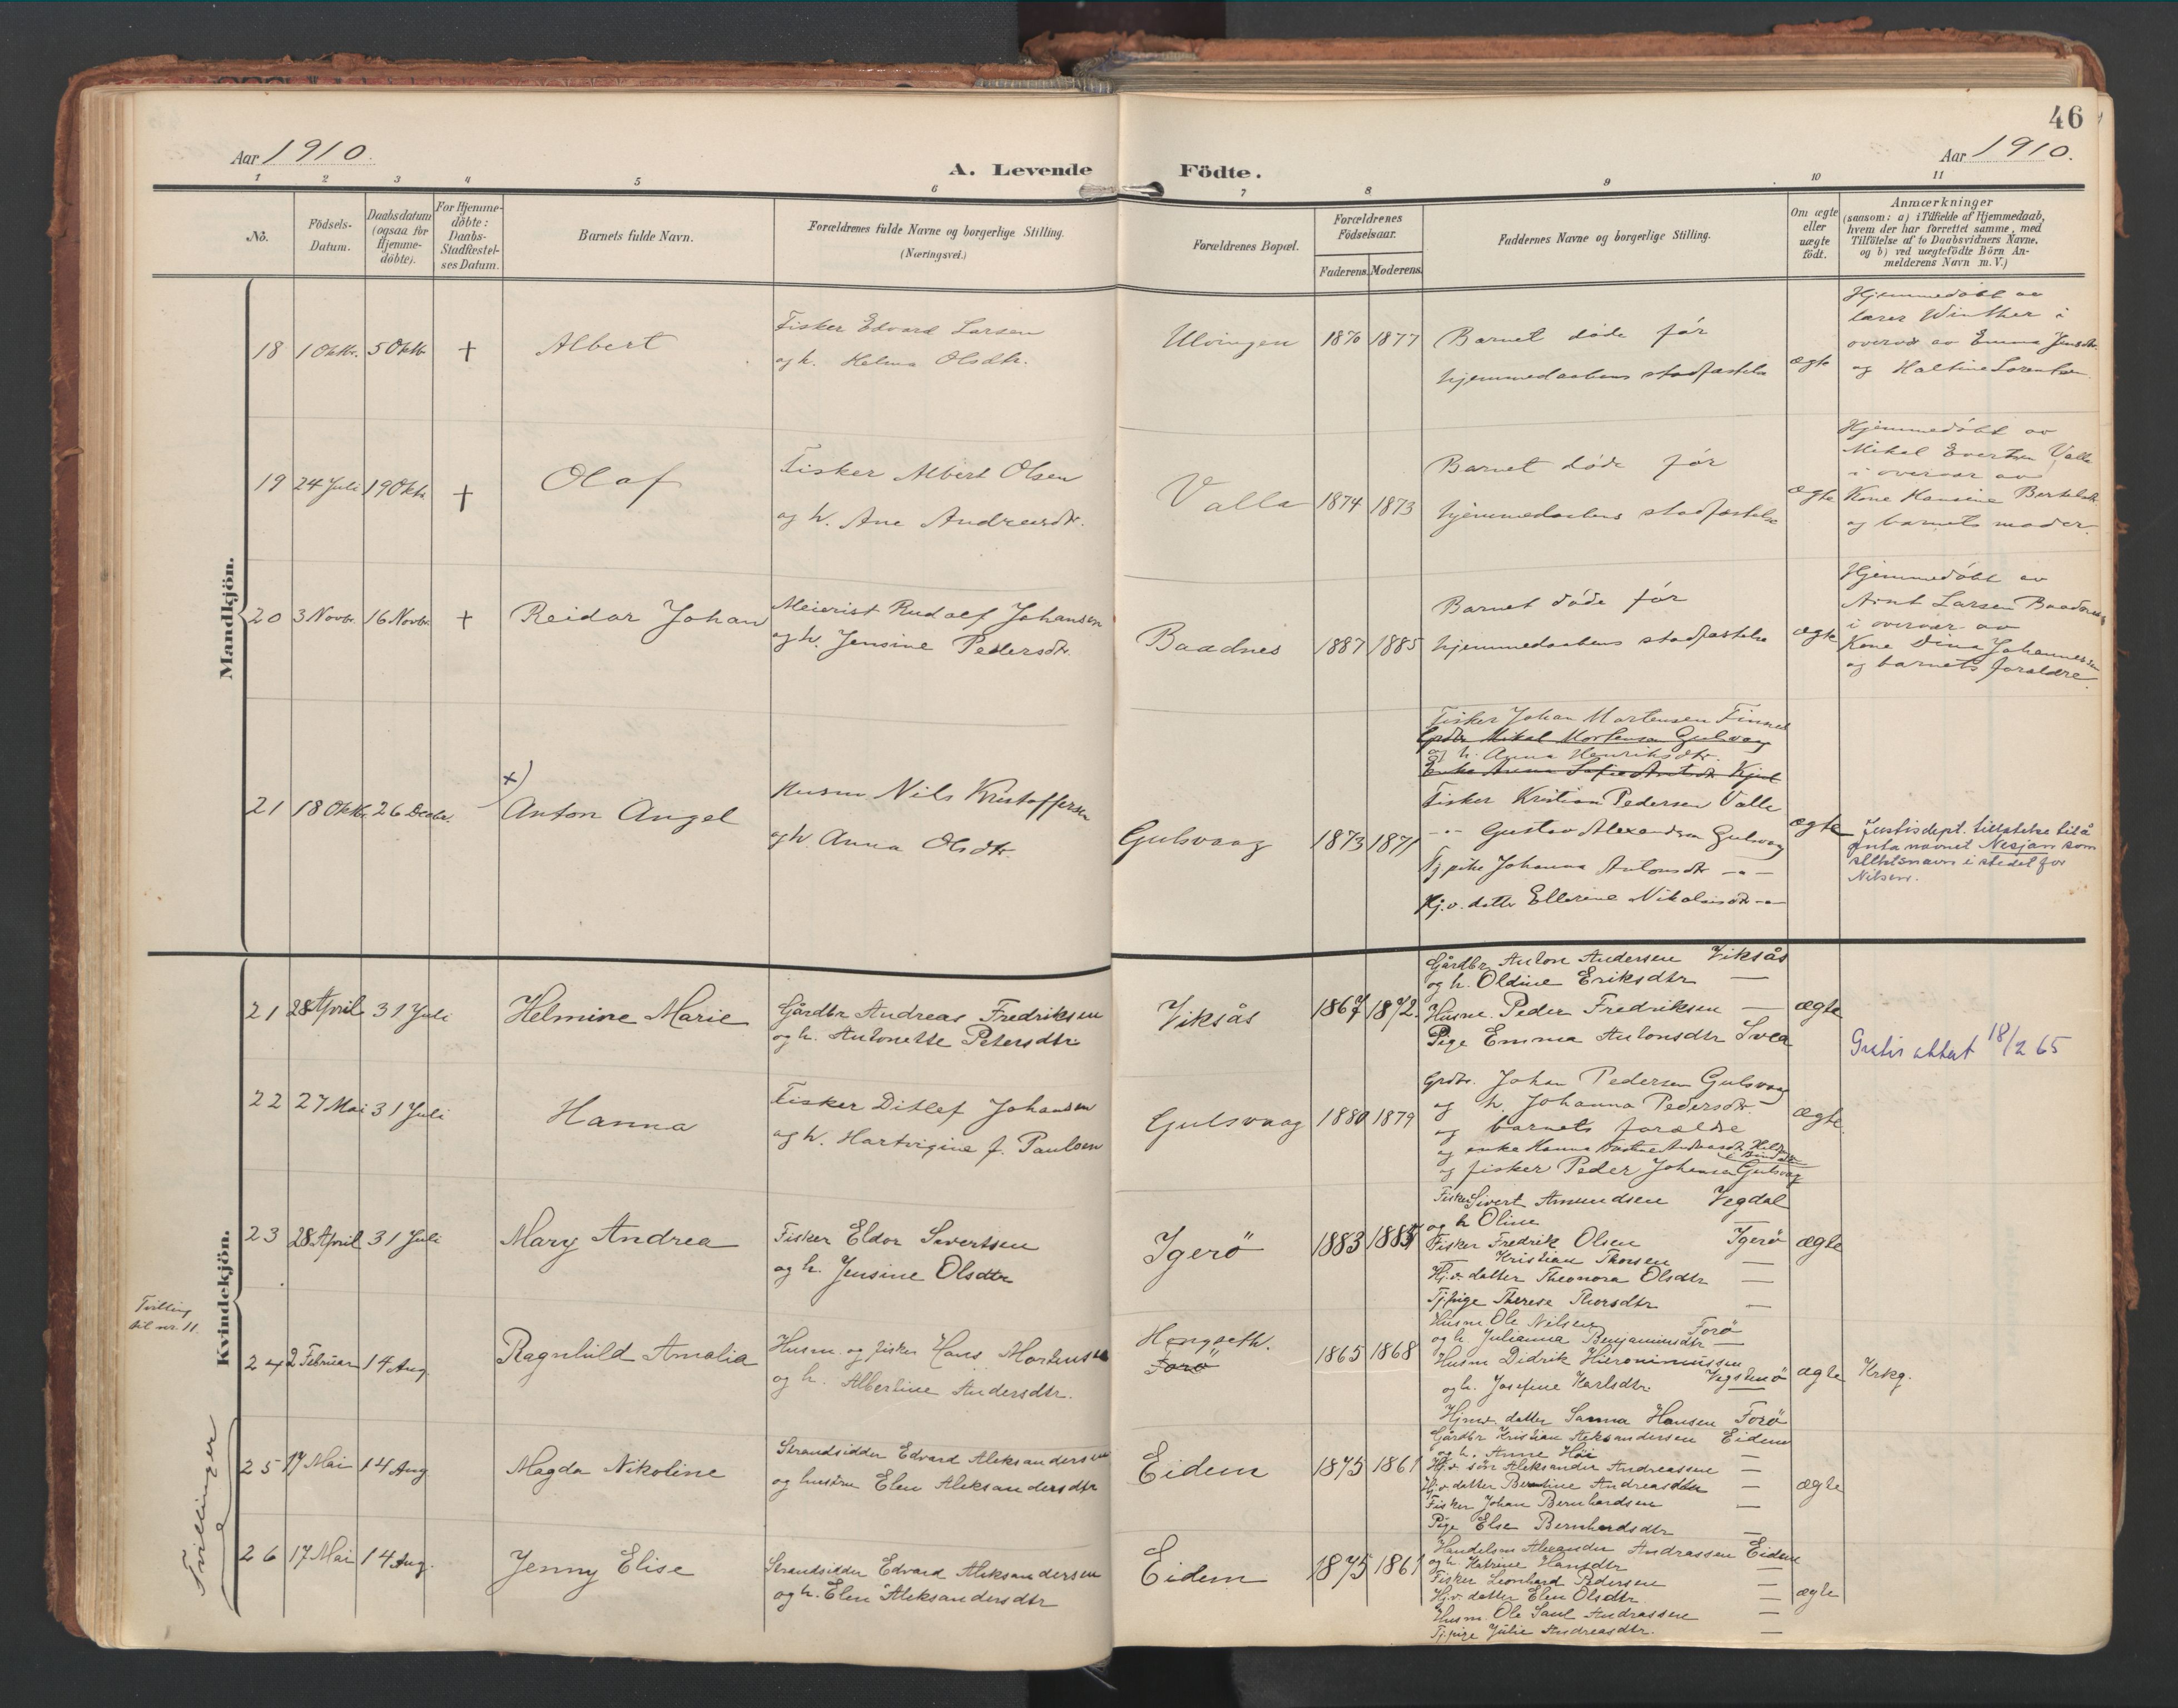 46
Aar 1910.
A. Levende Födte.
Aar 1910.
1 2 3 4 5 6 7 8 9 10 11
No.
Födsels-Datum.
Daabsdatum (ogsaa for Hjemme-döbte).
For Hjemme-döbte: Daabs-Stadfæstel-ses Datum.
Barnets fulde Navn.
Forældrenes fulde Navne og borgerlige Stilling.
(Næringsvei.)
Forældrenes Bopæl.
Forældrenes Födselsaar.
Faderens. Moderens.
Faddernes Navne og borgerlige Stilling.
Om ægte eller uægte födt.
Anmærkninger
(saasom: a) i Tilfælde af Hjemmedaab,
hvem der har forrettet samme, med
Tilföielse af to Daabsvidners Navne.
og b) ved uægtefödte Börn An-
melderens Navn m. V.)
Mandkjön.
18 1 Oktbr. 5 Oktbr † Albert
Fisker Edvard Larsen
og h. Helma Olsdtr.
Ulvingen 1870 1877
Barnet døde før
hjemmedaabens stadfæstelse
ægte
Hjemmedøbt av
lærer Winther i
overvær av Emma Jensdtr.
og Haltine Lorentsen.
19 24 Juli 19 Oktbr † Olaf
Fisker Albert Olsen
og h. Ane Andreasdtr.
Valla 1874 1873
Barnet døde før
hjemmedaabens stadfæstelse
ægte
Hjemmedøbt av
Mikal Evertsen Valla
i overvær av
Kone Hansine Bertelsdtr
og barnets moder.
20 3 Novbr. 16 Novbr. † Reidar Johan
Meierist Rudolf Johansen
og h. Jensine Pedersdtr.
Baadnes 1887 1885
Barnet døde før
hjemmedaabens stadfæstelse
ægte
Hjemmedøbt av
Arnt Larsen Baadnes
i overvær av
Kone Dina Johannessen
og barnets forældre.
21 18 Oktbr. 26 Decbr. x) Anton Angel
Husm Nils Kristoffersen
og h. Anna Olsdtr.
Gulsvaag 1873 1871
Fisker Johan Mortensen Finnes
Grdbr. Mikal Mortensen Gulsvaag
og h. Anna Henriksdtr.
Enke Anna Sofie Arntsdtr. Kjul
Fisker Kristian Pedersen Valla
-"- Gustav Alexandersen Gulsvaag
Tj pike Johanna Antonsdtr -"-
Hj.v. datter Ellerine Nikolaisdtr -"-
ægte
Justisdept. tillatelse til å
anta navnet Nesjan som
slektsnavn i stedet for
Nilsen.
Kvindekjön.
21 28 April 31 Juli Helmine Marie
Gårdbr Andreas Fredriksen
og h. Antonette Petersdtr.
Viksås 1867 1872.
Gårdbr Anton Andersen Viksås
og h. Oldine Eriksdtr —
Husm. Peder Fredriksen —
Pige Emma Antonsdtr Svea
ægte
Gratis attest 18/2 65
22 27 Mai 31 Juli Hanna
Fisker Ditlef Johansen
og h. Hartvigine f. Paulsen
Gulsvaag 1880 1879
Grdbr. Johan Pedersen Gulsvaag
og h. Johanna Pedersdtr.
og barnets forældre
og enke Hanna
og fisker Peder Johansen Gulsvaag
ægte.
23 28 April 31 Juli Mary Andrea
Fisker Eldor Sivertsen
og h. Jensine Olsdtr
Igerö 1883 1885
Fisker Sivert Amundsen Vegdal
og h Oline —
Fisker Fredrik Olsen Igerö
Kristian Thorsen —
Hj.v. datter Theonora Olsdtr —
Tj.pige Therese Thorsdtr —
ægte
Tvilling
til nr. 11.
24 2 Februar 14 Aug. Ragnhild Amalia
Husm. og fisker Hans Mortensen
og h. Albertine Andersdtr.
Hongseth.
Forö
1865 1868
Husm Ole Nilsen Forö
og h Julianna Benjaminsdtr —
Husm Didrik Hieronimussen
og h. Josefine Karlsdtr. Vegstenö
Hjmv. datter Sanna Hansen Forö
ægte
Krkg.
Tvillinger
25 17 Mai 14 Aug. Magda Nikoline
Strandsidder Edvard Aleksandersen
og hustru Elen Aleksandersdtr
Eidem 1875 1861
Gårdbr Kristian Aleksandersen Eidem
og h. Anne Höi —
Hj.v. sön Aleksander Andreassen —
Hj.v. datter Berntine Andreasdtr —
Fisker Johan Bernhardsen —
Pige Else Bernhardsdtr —
ægte
26 17 Mai 14 Aug. Jenny Elise
Strandsidder Edvard Aleksandersen
og h. Elen Aleksandersdtr
Eidem 1875 1861
Handelsm Alexander Andrassen Eidem
og h. Katrine Hansdtr —
Fisker Leonhard Pedersen —
Hj.v. datter Elen Olsdtr. —
Husm. Ole Saul Andrassen —
Tj.pige Julie Andreasdtr. —
ægte